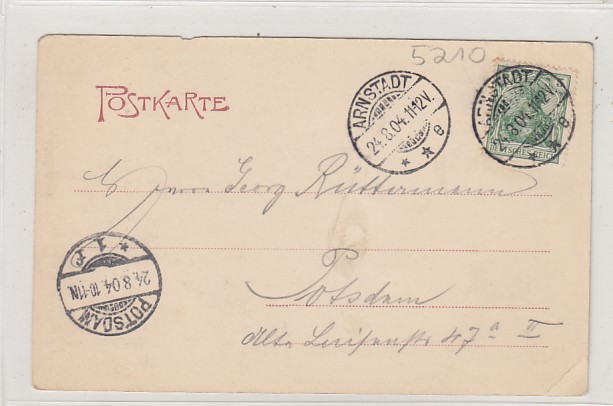 5210
POSTKARTE
ARNSTADT
24.8.04.11-12V.
* * e
ARNSTADT
24.8.04.11-12V.
* * e
DEUTSCHES REICH
Herrn Georg Rüttermann
Potsdam
Alte Luisenstr 47a II
POTSDAM
24.8.04.10-11N.
* 1 *